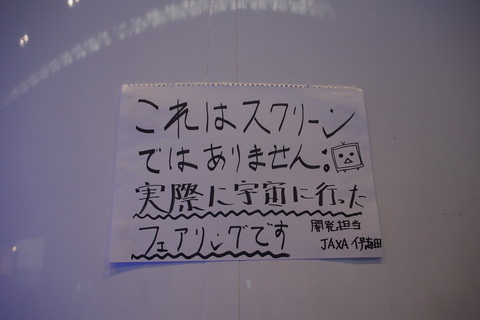 これはスクリーン
ではありません!
実際に宇宙に行った
フェアリングです
開発担当
JAXA 伊海田